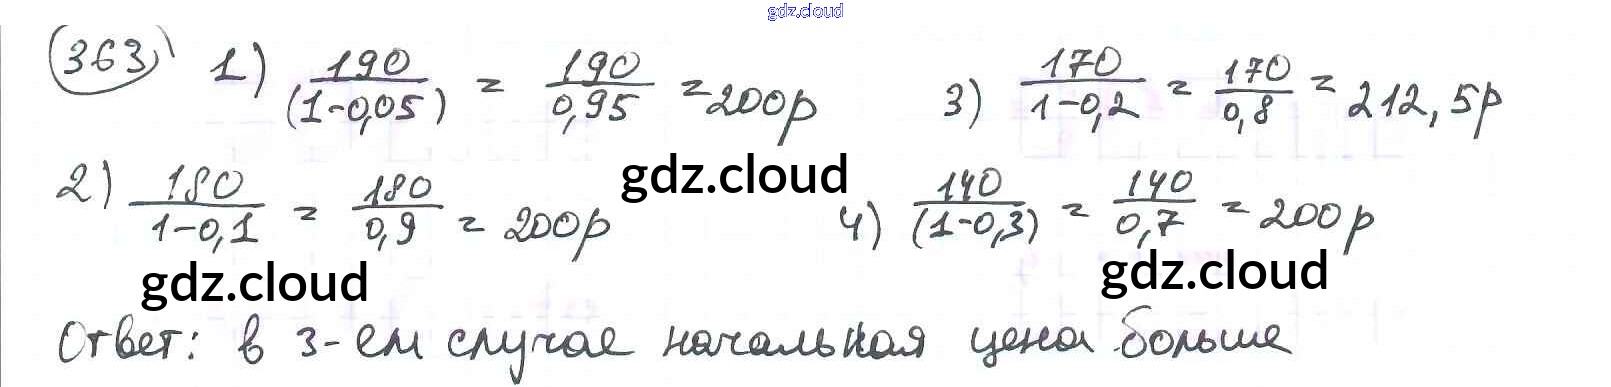 gdz.cloud
363 1) 190/(1-0,05) = 190/0,95 = 200р 3) 170/1-0,2 = 170/0,8 = 212,5р
gdz.cloud
2) 180/1-0,1 = 180/0,9 = 200р 4) 140/(1-0,3) = 140/0,7 = 200р
gdz.cloud gdz.cloud
Ответ: в 3-ем случае начальная цена больше